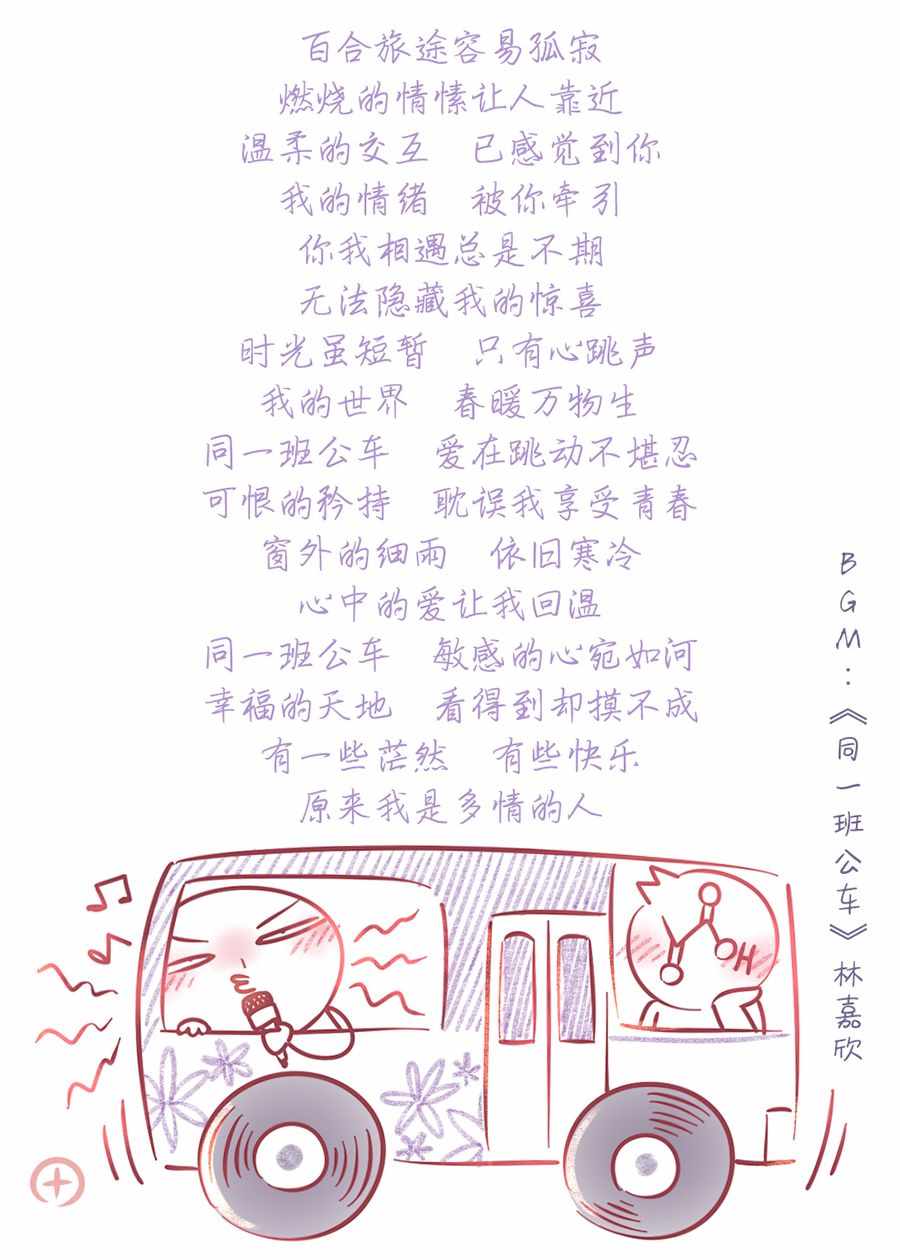 百合旅途容易孤寂
燃烧的情愫让人靠近
温柔的交互　已感觉到你
我的情绪　被你牵引
你我相遇总是不期
无法隐藏我的惊喜
时光虽短暂　只有心跳声
我的世界　春暖万物生
同一班公车　爱在跳动不堪忍
可恨的矜持　耽误我享受青春
窗外的细雨　依旧寒冷
心中的爱让我回温
同一班公车　敏感的心宛如河
幸福的天地　看得到却摸不成
有一些茫然　有些快乐
原来我是多情的人
BGM：《同一班公车》林嘉欣
OH